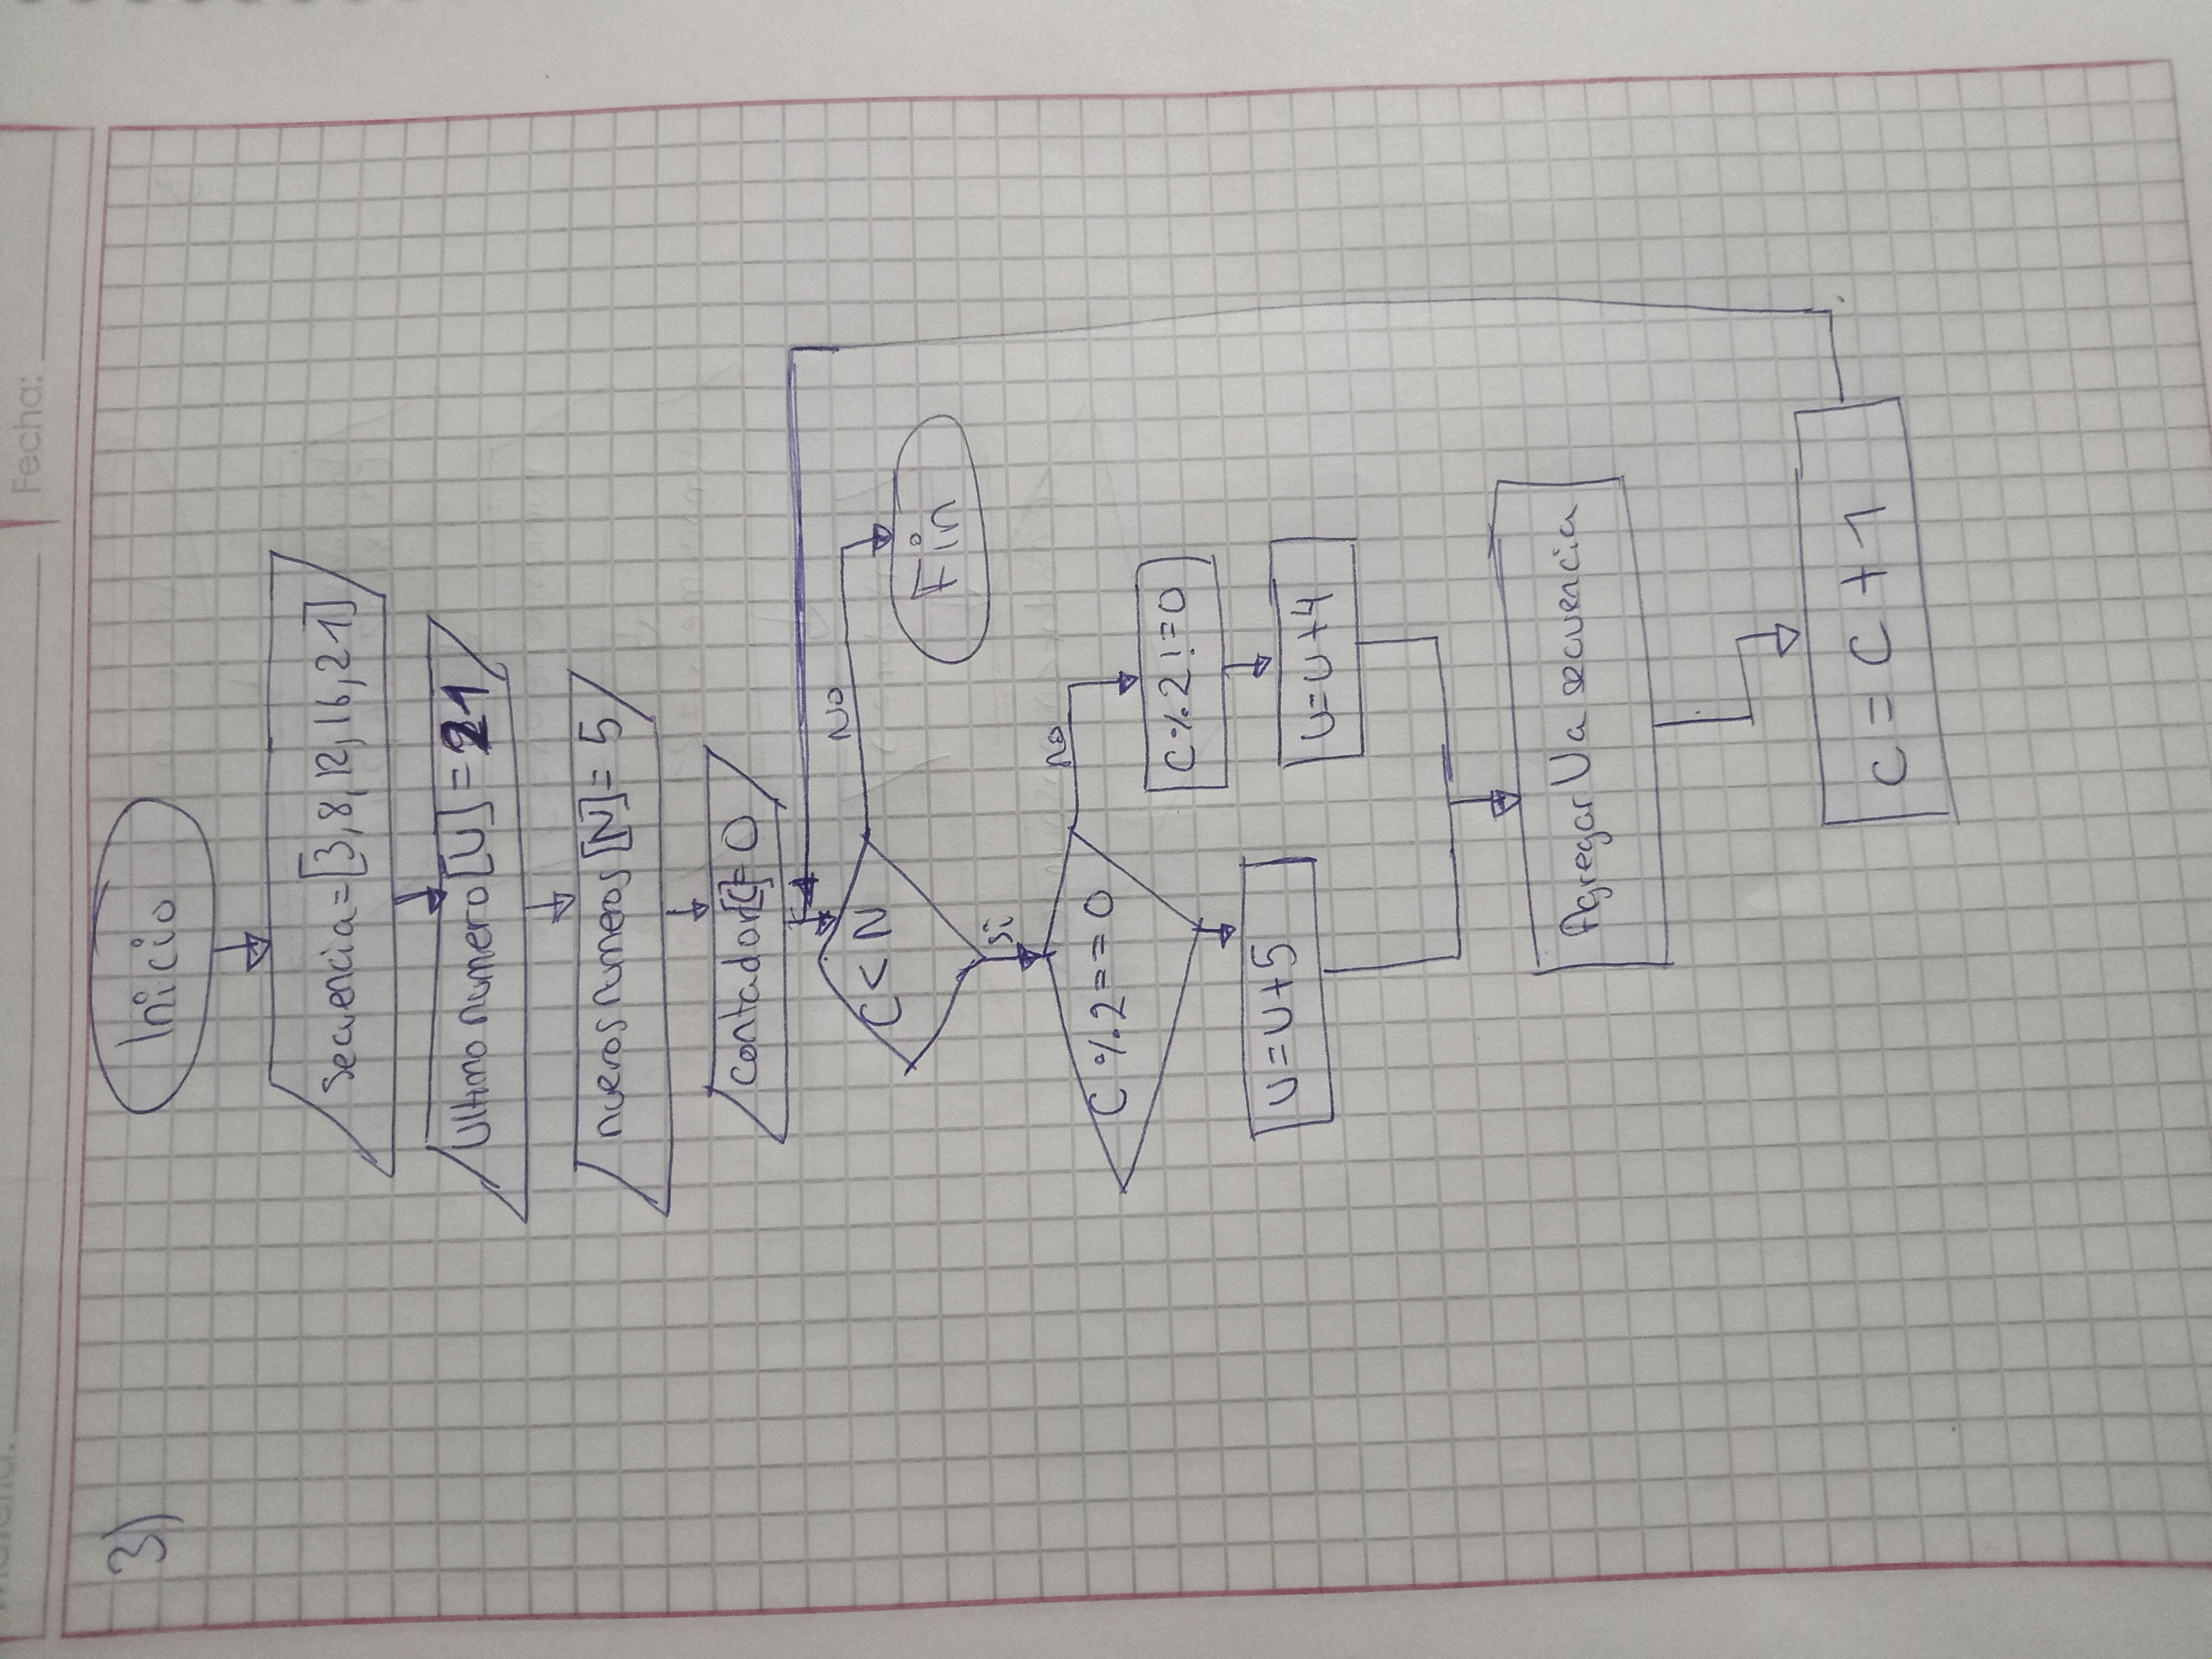 Materia:
Fecha:
3)
Inicio
Secuencia=[3,8,12,16,21]
Ultimo numero[U]=21
nuevos numeros[N]=5
contador[C]=0
C<N
No
Fin
si
C%2==0
no
C%2!=0
U=U+5
U=U+4
Agregar U a secuencia
C=C+1